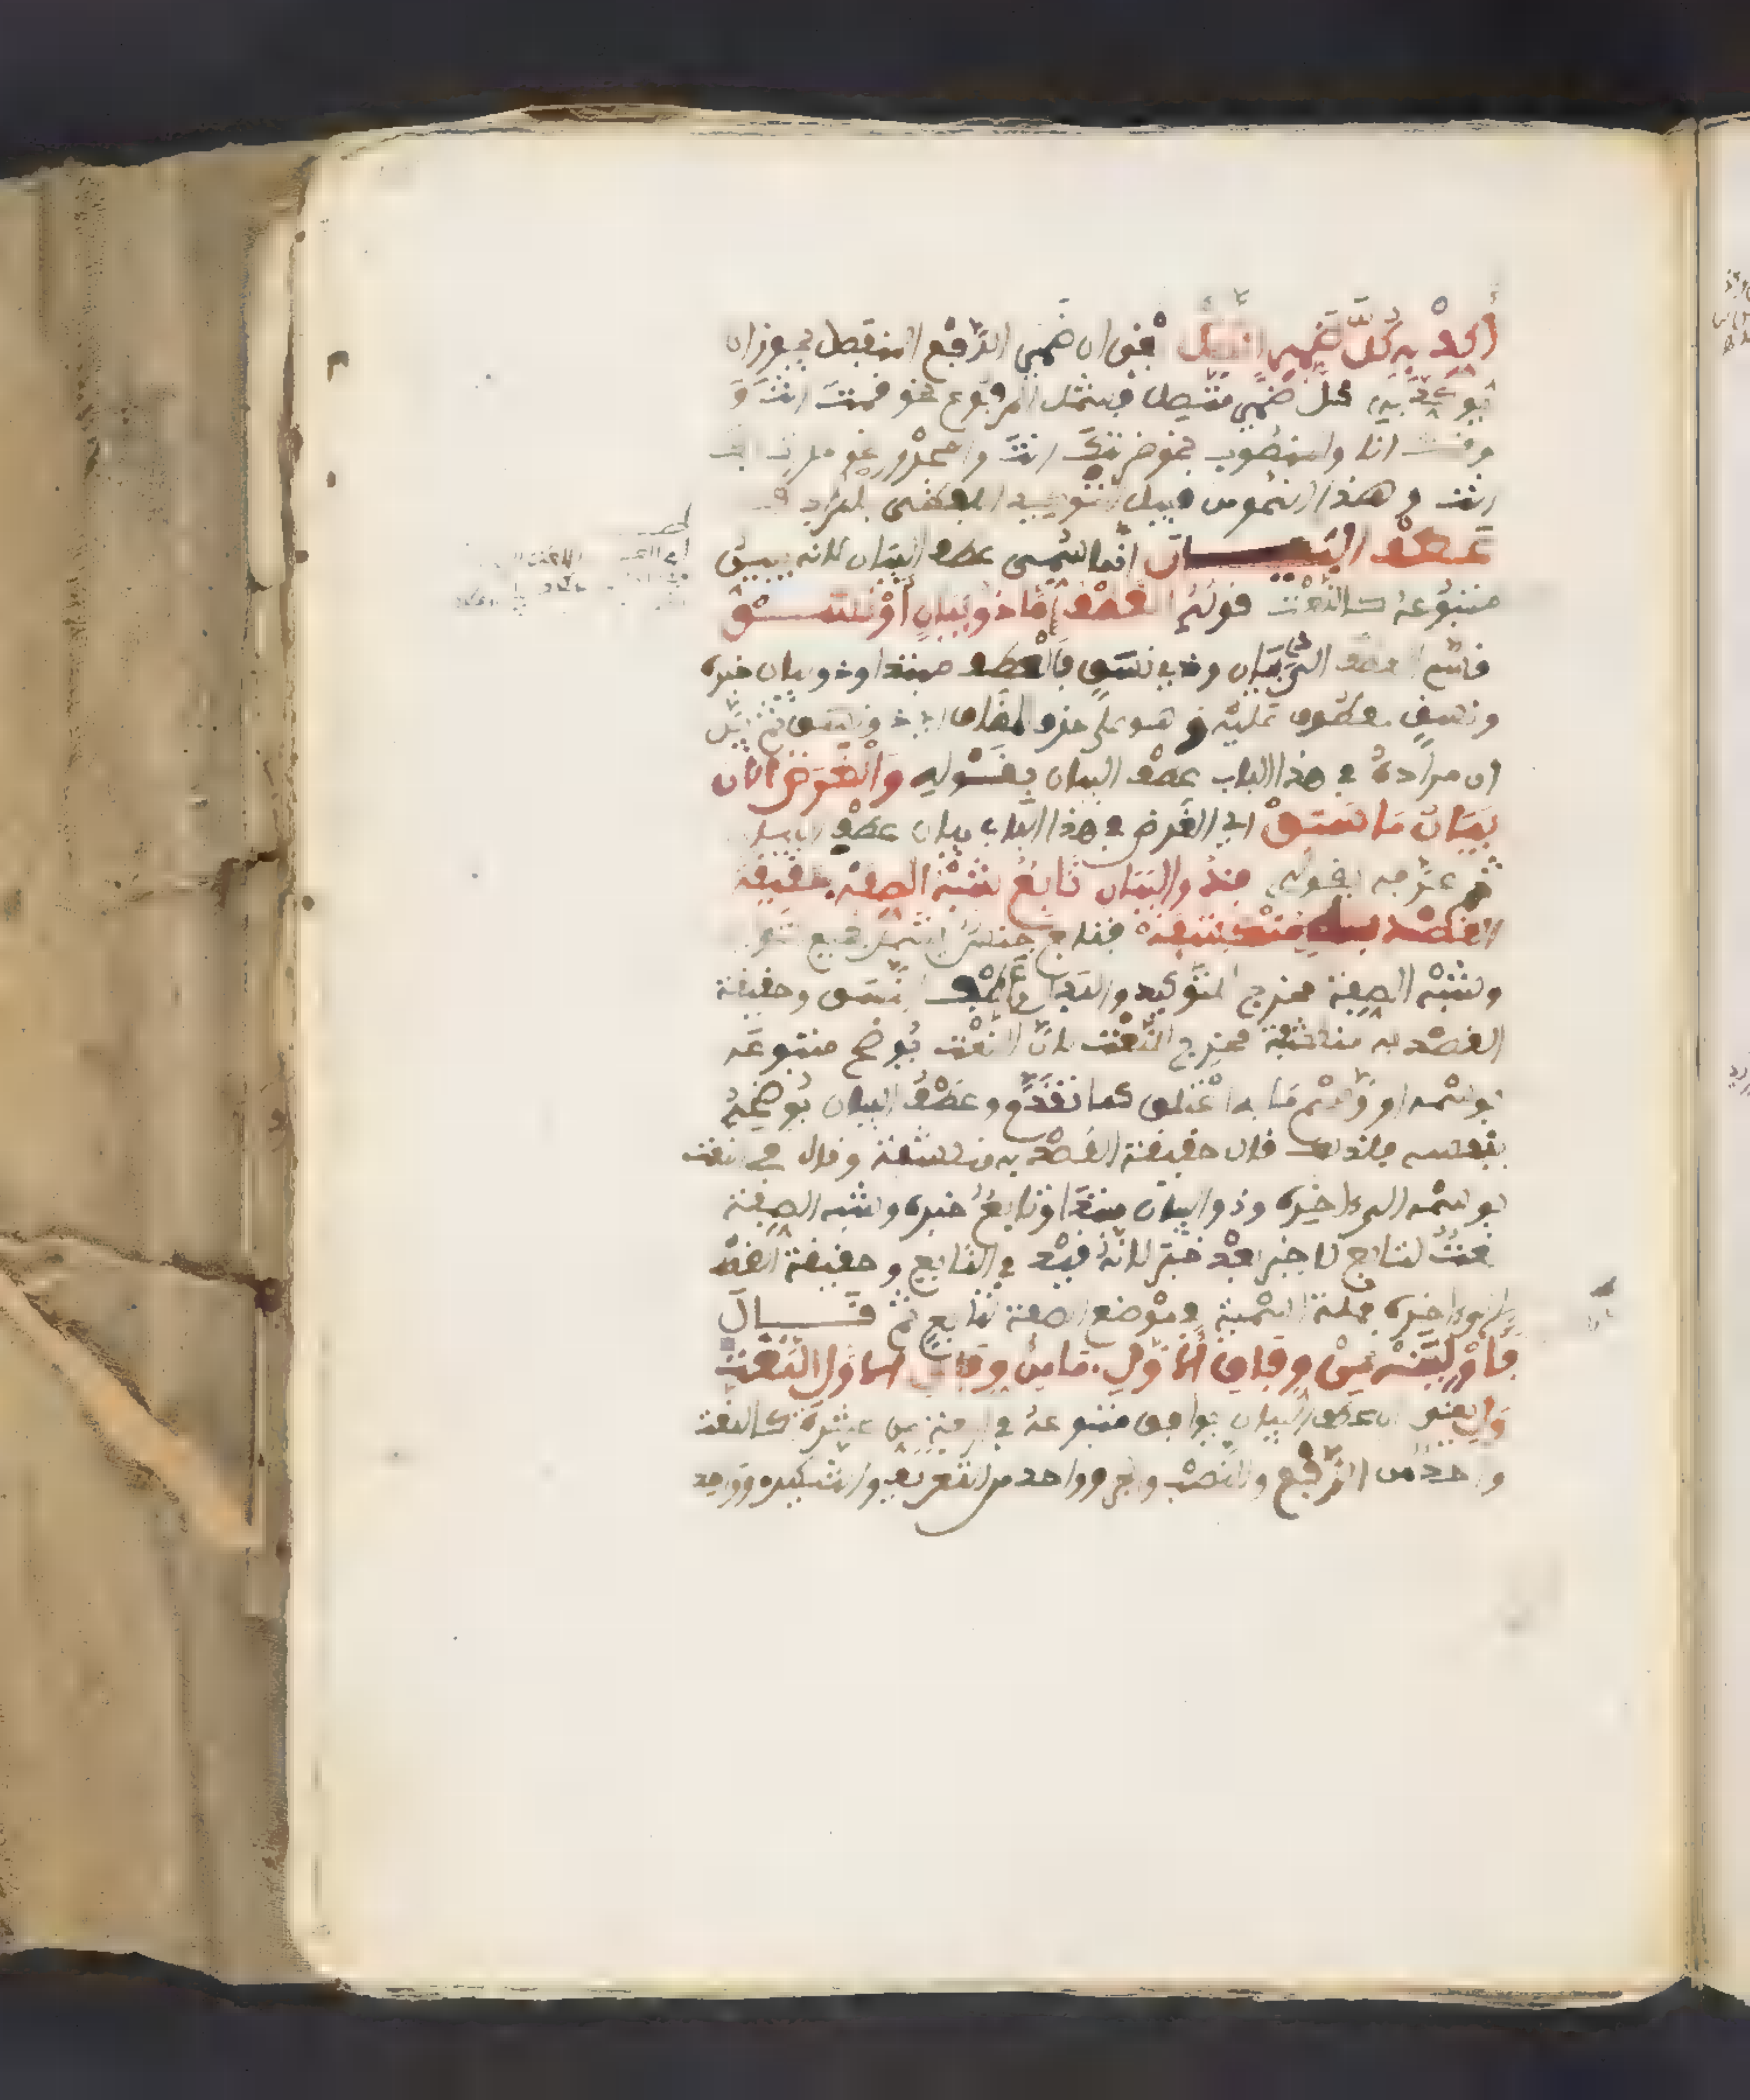 أكد به كل ضمير اتصل يعني ان ضمير الرفع المنفصل يجوز ان
يوكد به كل ضمير متصل فيشمل المرفوع نحو قمت انت و
وقمت انا والمنصوب نحو ضربتك انت والمجرور نحو مررت بك
انت وهذا النوع من قبيل التوكيد اللفظي بالمرادف
عطف البيـــان انما سمي عطف البيان لانه يبين
متبوعه كالنعت قوله العطف اما ذو بيان أو نسق
قسم العطف الى ذي بيان وذي نسق فالعطف مبتدا وذو بيان خبره
ونسق معطوف عليه وهو على حذف المضاف اي ذو نسق ثم بين
ان مراده في هذا الباب عطف البيان بقوله والغرض الان
بيان ما سبق اي الغرض في هذا الباب بيان عطف البيان
ثم عرفه بقوله فذو البيان تابع شبه الصفه حقيقة
القصد به منكشفة فتابع جنس يشمل جميع التوابع
وشبه الصفة مخرج للتوكيد والبدل وعطف النسق وحقيقة
القصد به منكشفة مخرج للنعت لان النعت يوضح متبوعه
بوسمه او وسم ما به اعتلق كما تقدم وعطف البيان يوضحه
بنفسه فلذلك قال حقيقة القصد به منكشفة وقال في النعت
بوسمه الى اخره وذو البيان مبتدا وتابع خبره وشبه الصفة
نعت لتابع لا خبر بعد خبر لانه قيد في التابع وحقيقة القصد
الى اخره جملة اسمية في موضع الصفة لتابع ثم قـــال
فأولينه من وفاق الأول ما من وفاق الاول النعت
ولي يعني ان عطف البيان يوافق متبوعه في اربعة من عشرة كالنعت
واحد من الرفع والنصب والجر وواحد من التعريف والتنكير وواحد